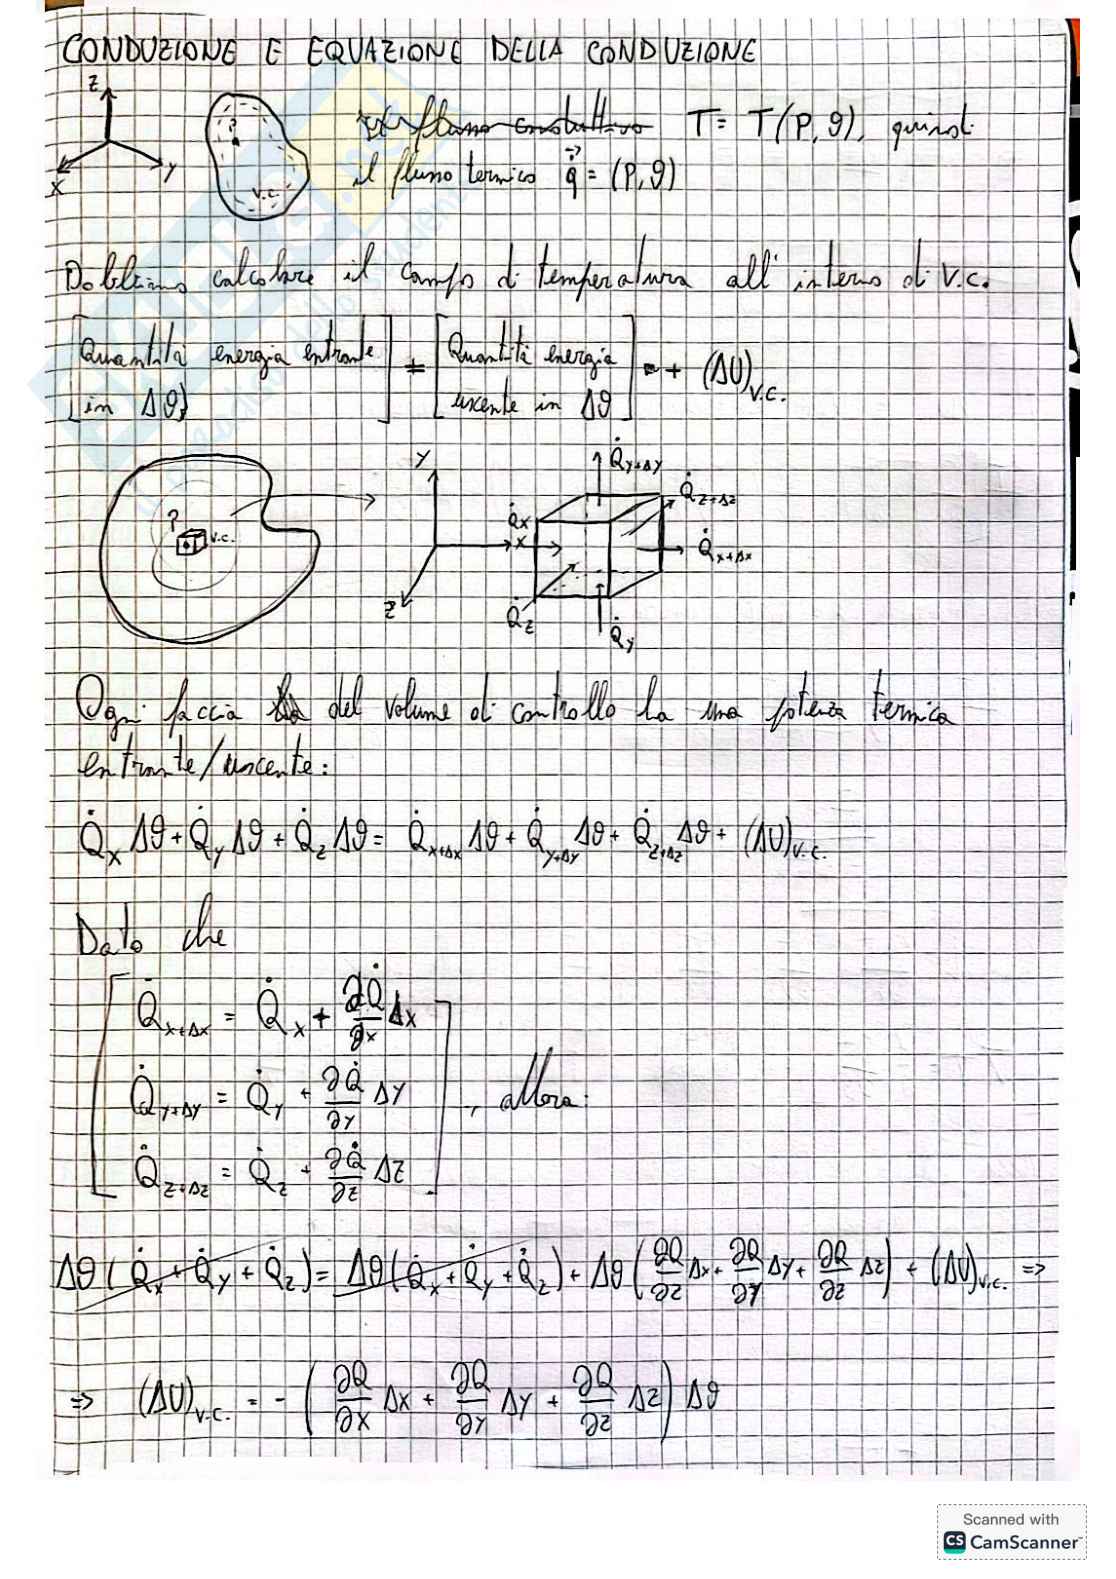 CONDUZIONE E EQUAZIONE DELLA CONDUZIONE
Z
X
Y
P
V.C.
T = T(P, ϑ), quindi
il flusso termico q̇⃗ = (P, ϑ)
Dobbiamo calcolare il campo di temperatura all'interno di V.C.
[Quantità energia entrante in Δϑ] = [Quantità energia uscente in Δϑ] + (ΔU)V.C.
P
V.C.
Y
X
Z
Q̇x
Q̇y+Δy
Q̇z+Δz
Q̇x+Δx
Q̇z
Q̇y
Ogni faccia del volume di controllo ha una potenza termica
entrante/uscente:
Q̇x Δϑ + Q̇y Δϑ + Q̇z Δϑ = Q̇x+Δx Δϑ + Q̇y+Δy Δϑ + Q̇z+Δz Δϑ + (ΔU)V.C.
Dato che
Q̇x+Δx = Q̇x + ∂Q̇/∂x Δx
Q̇y+Δy = Q̇y + ∂Q̇/∂y Δy , allora:
Q̇z+Δz = Q̇z + ∂Q̇/∂z Δz
Δϑ (Q̇x + Q̇y + Q̇z) = Δϑ (Q̇x + Q̇y + Q̇z) + Δϑ (∂Q/∂z Δx + ∂Q/∂y Δy + ∂Q/∂z Δz) + (ΔU)V.C. =>
=> (ΔU)V.C. = - (∂Q/∂x Δx + ∂Q/∂y Δy + ∂Q/∂z Δz) Δϑ
Scanned with
CS CamScanner